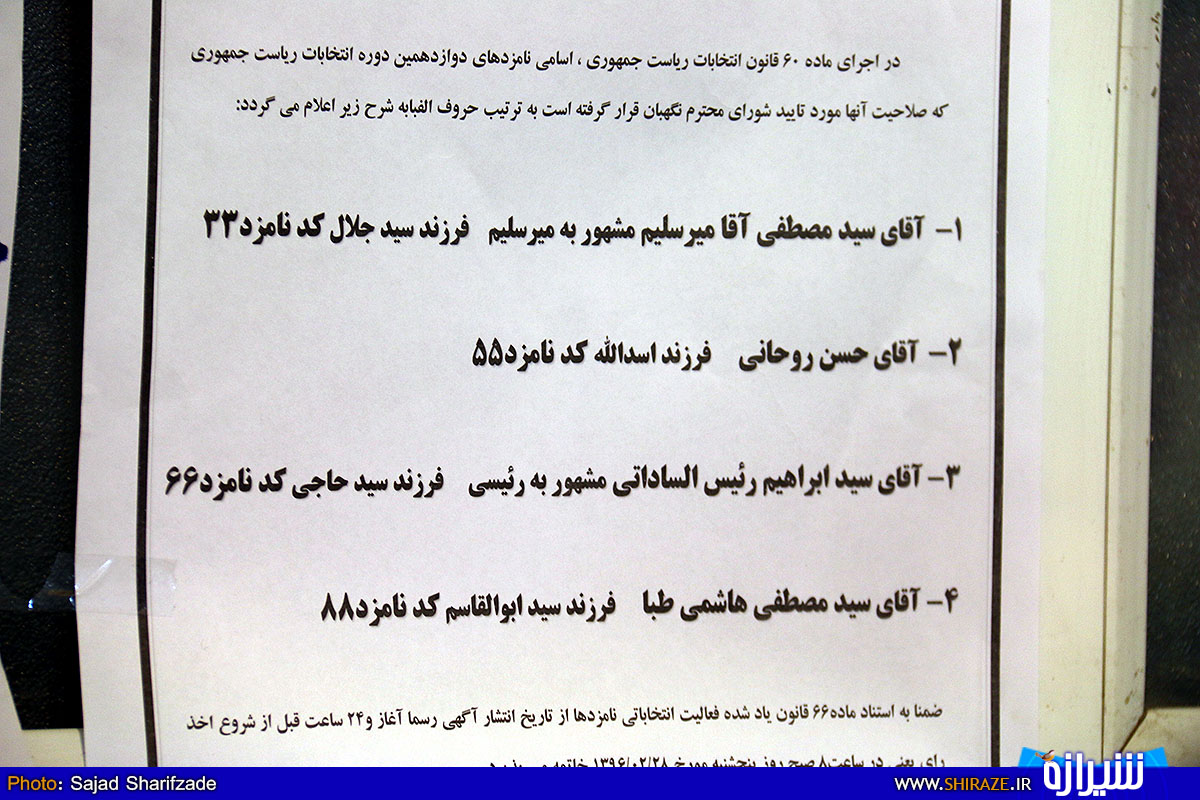 در اجرای ماده ۶۰ قانون انتخابات ریاست جمهوری ، اسامی نامزدهای دوازدهمین دوره انتخابات ریاست جمهوری
که صلاحیت آنها مورد تایید شورای محترم نگهبان قرار گرفته است به ترتیب حروف الفبابه شرح زیر اعلام می گردد:
۱- آقای سید مصطفی آقا میرسلیم مشهور به میرسلیم فرزند سید جلال کد نامزد۳۳
۲- آقای حسن روحانی فرزند اسدالله کد نامزد۵۵
۳- آقای سید ابراهیم رئیس الساداتی مشهور به رئیسی فرزند سید حاجی کد نامزد۶۶
۴- آقای سید مصطفی هاشمی طبا فرزند سید ابوالقاسم کد نامزد۸۸
ضمنا به استناد ماده۶۶ قانون یاد شده فعالیت انتخاباتی نامزدها از تاریخ انتشار آگهی رسما آغاز و۲۴ ساعت قبل از شروع اخذ
رای یعنی در ساعت۸ صبح روز پنجشنبه مورخ ۱۳۹۶/۰۲/۲۸ خاتمه
Photo: Sajad Sharifzade
WWW.SHIRAZE.IR
شیرازه